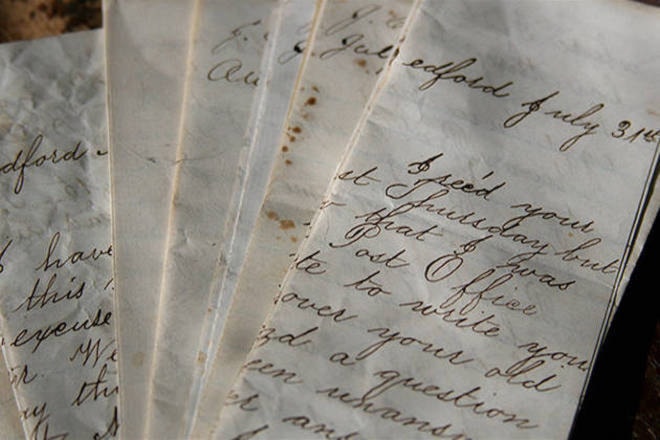 dford
I have
this
excuse
r. We
y th
Au
J. July
edford July 31st
I rec'd your
st Thursday but
that I was
Post Office
te to write you
over your old
d a question
een unans
er an